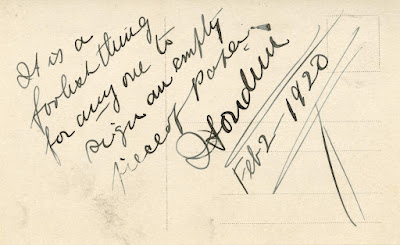 It is a
foolish thing
for anyone to
sign an empty
piece of paper.
Houdini
Feb 2 - 1920